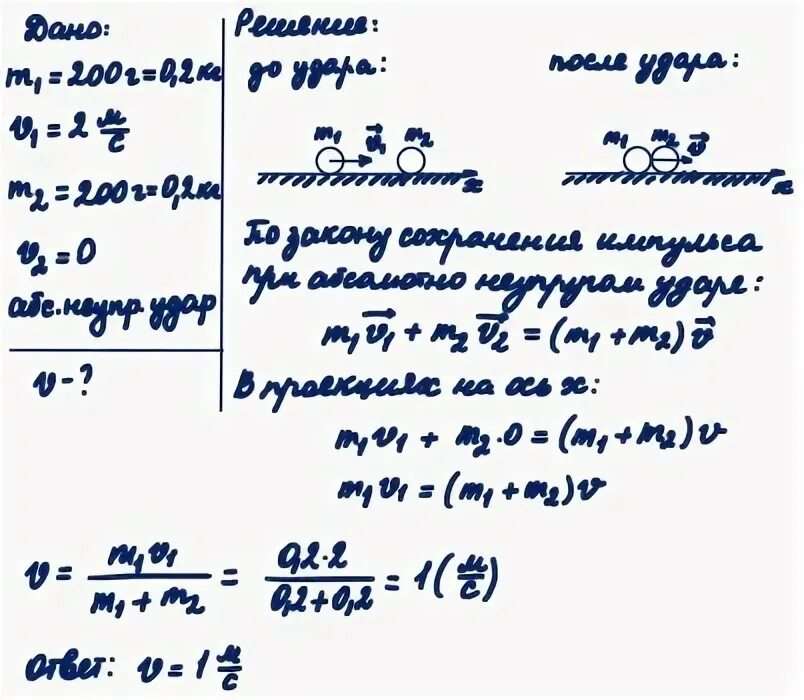 Дано:
m₁ = 200 г = 0,2 кг
v₁ = 2 м/с
m₂ = 200 г = 0,2 кг
v₂ = 0
абс. неупр. удар
v - ?
Решение:
до удара:
после удара:
m₁ v⃗₁ m₂
x
m₁ m₂ v⃗
x
По закону сохранения импульса
при абсолютно неупругом ударе:
m₁v⃗₁ + m₂v⃗₂ = (m₁ + m₂)v⃗
В проекциях на ось x:
m₁v₁ + m₂·0 = (m₁ + m₂)v
m₁v₁ = (m₁ + m₂)v
v = m₁v₁ / (m₁ + m₂) = 0,2·2 / (0,2+0,2) = 1 (м/с)
Ответ: v = 1 м/с